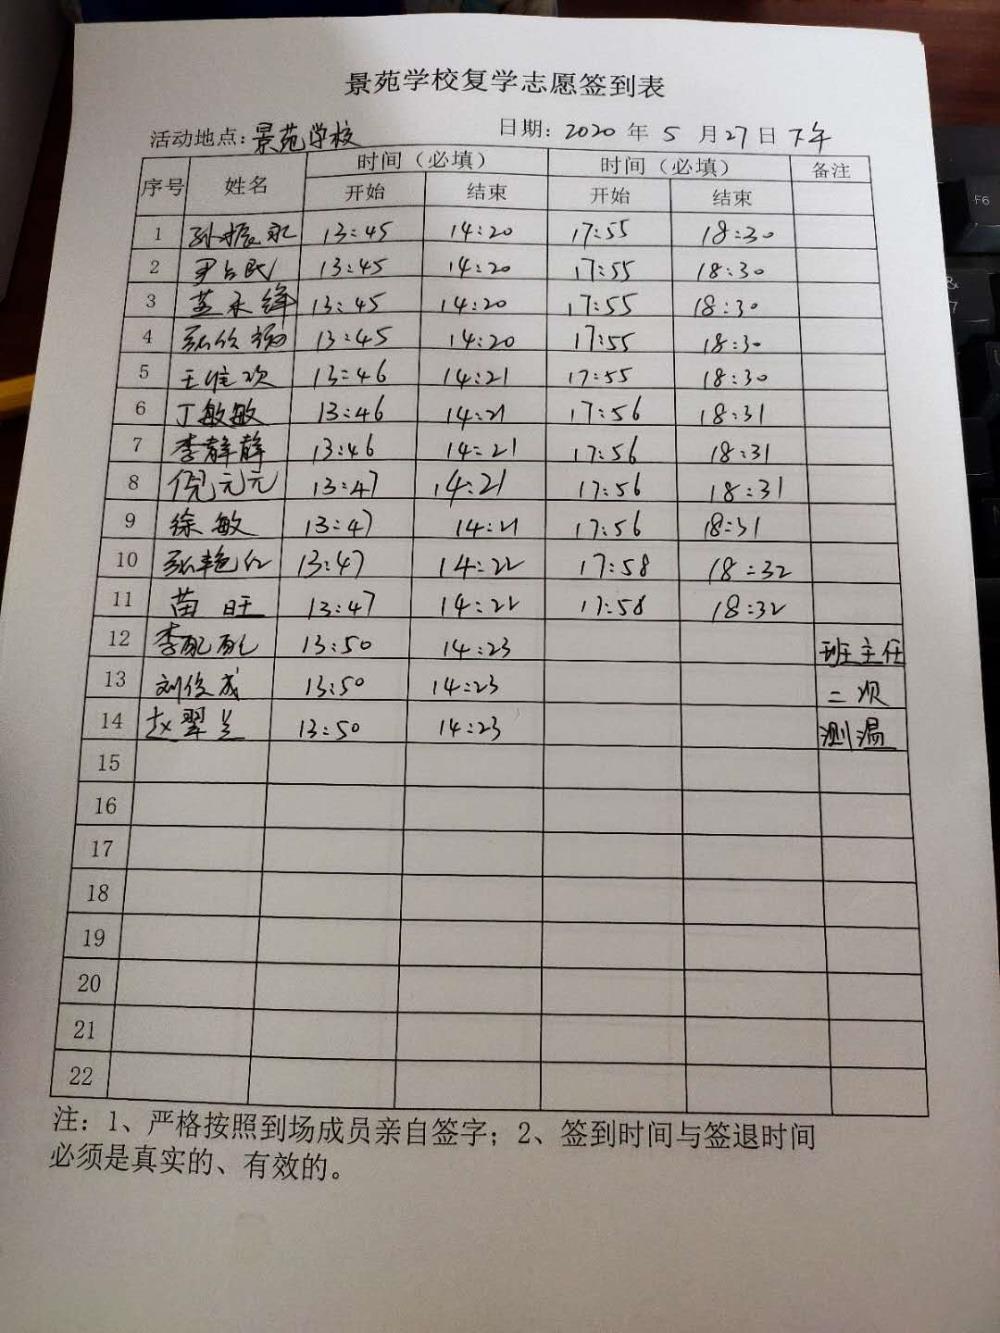 景苑学校复学志愿签到表
活动地点:景苑学校 日期: 2020 年 5 月 27 日 下午
序号 姓名 时间（必填） 时间（必填） 备注
开始 结束 开始 结束
1 孙振永 13:45 14:20 17:55 18:30
2 尹占民 13:45 14:20 17:55 18:30
3 孟永锋 13:45 14:20 17:55 18:30
4 13:45 14:20 17:55 18:30
5 13:46 14:21 17:55 18:30
6 丁敏敏 13:46 14:21 17:56 18:31
7 李静静 13:46 14:21 17:56 18:31
8 倪元元 13:47 14:21 17:56 18:31
9 徐敏 13:47 14:21 17:56 18:31
10 张艳红 13:47 14:22 17:58 18:32
11 苗旺 13:47 14:22 17:58 18:32
12 李配配 13:50 14:23 班主任
13 刘俊成 13:50 14:23 二次
14 赵翠兰 13:50 14:23 测温
15
16
17
18
19
20
21
22
注: 1、严格按照到场成员亲自签字；2、签到时间与签退时间
必须是真实的、有效的。
F6
&
7